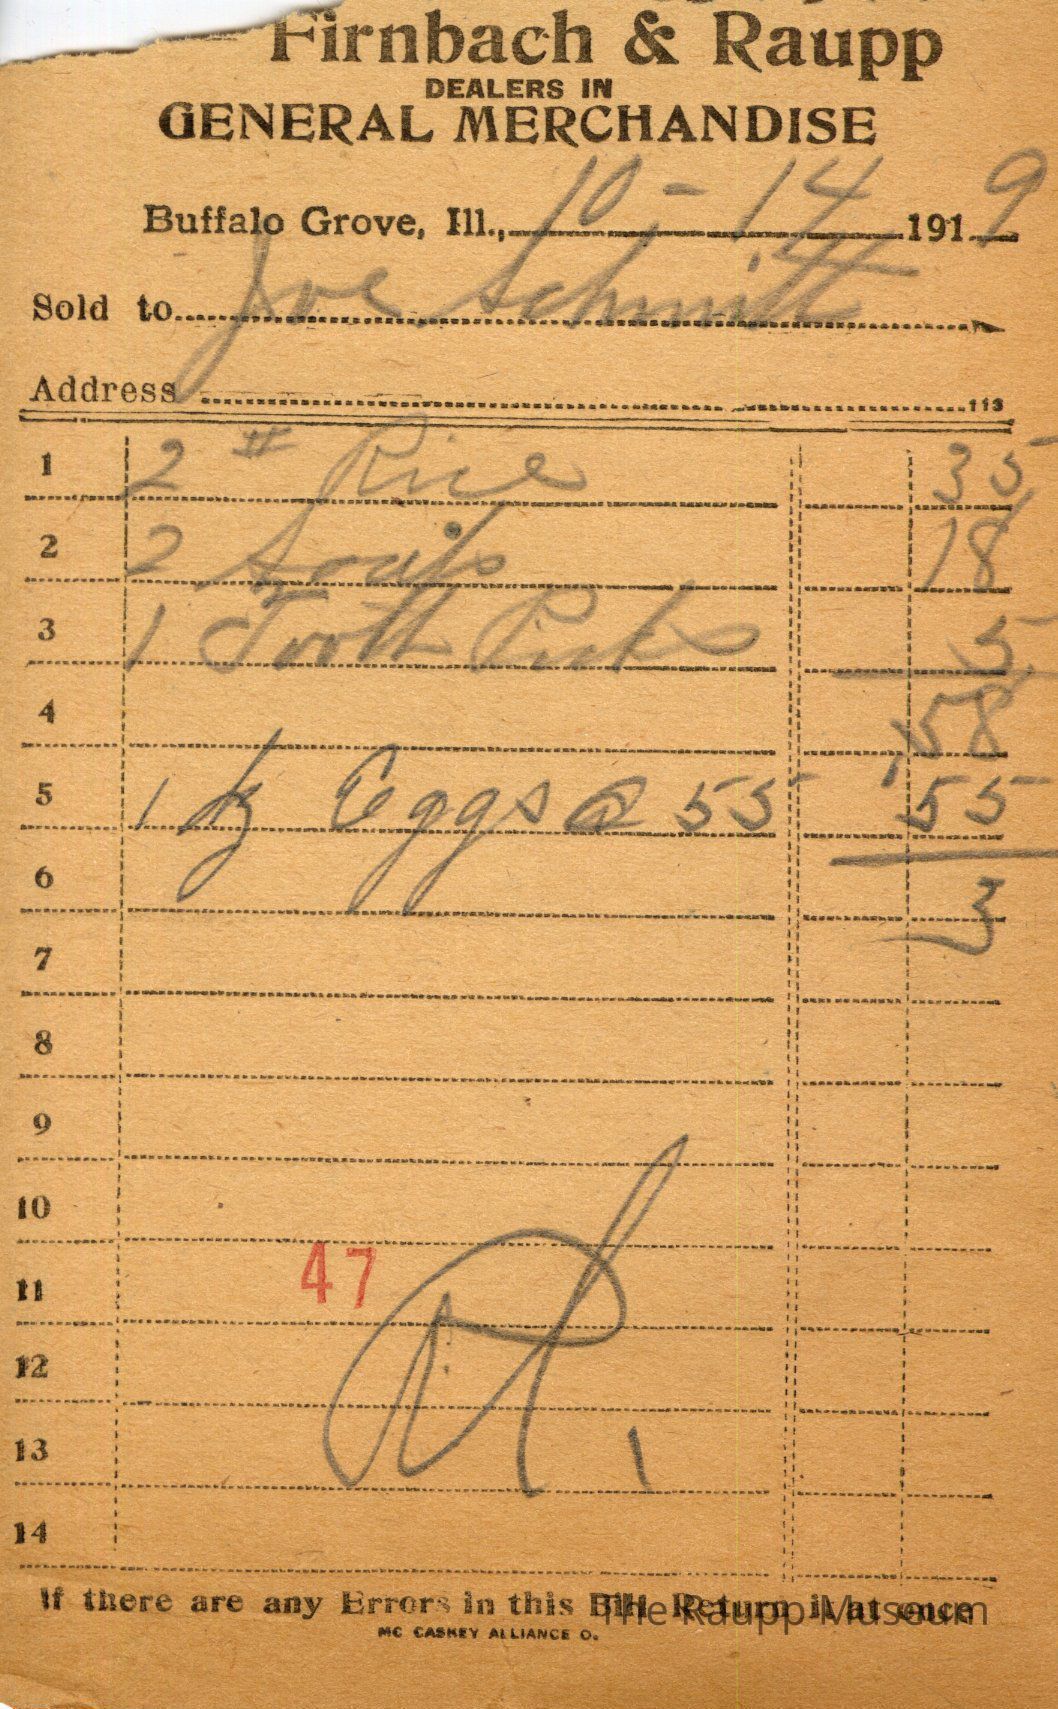 Firnbach & Raupp
DEALERS IN
GENERAL MERCHANDISE
Buffalo Grove, Ill., 10-14 1919
Sold to Joe Schmitt
Address 113
1 2 # Rice 35
2 2 Soaps 18
3 1 Tooth Picks 5
4 58
5 1 dz Eggs @ 55 55
6 3
7
8
9
10
11 47
12
13
14
If there are any Errors in this Bill Return it at once
The Raupp Museum
MC CASKEY ALLIANCE O.